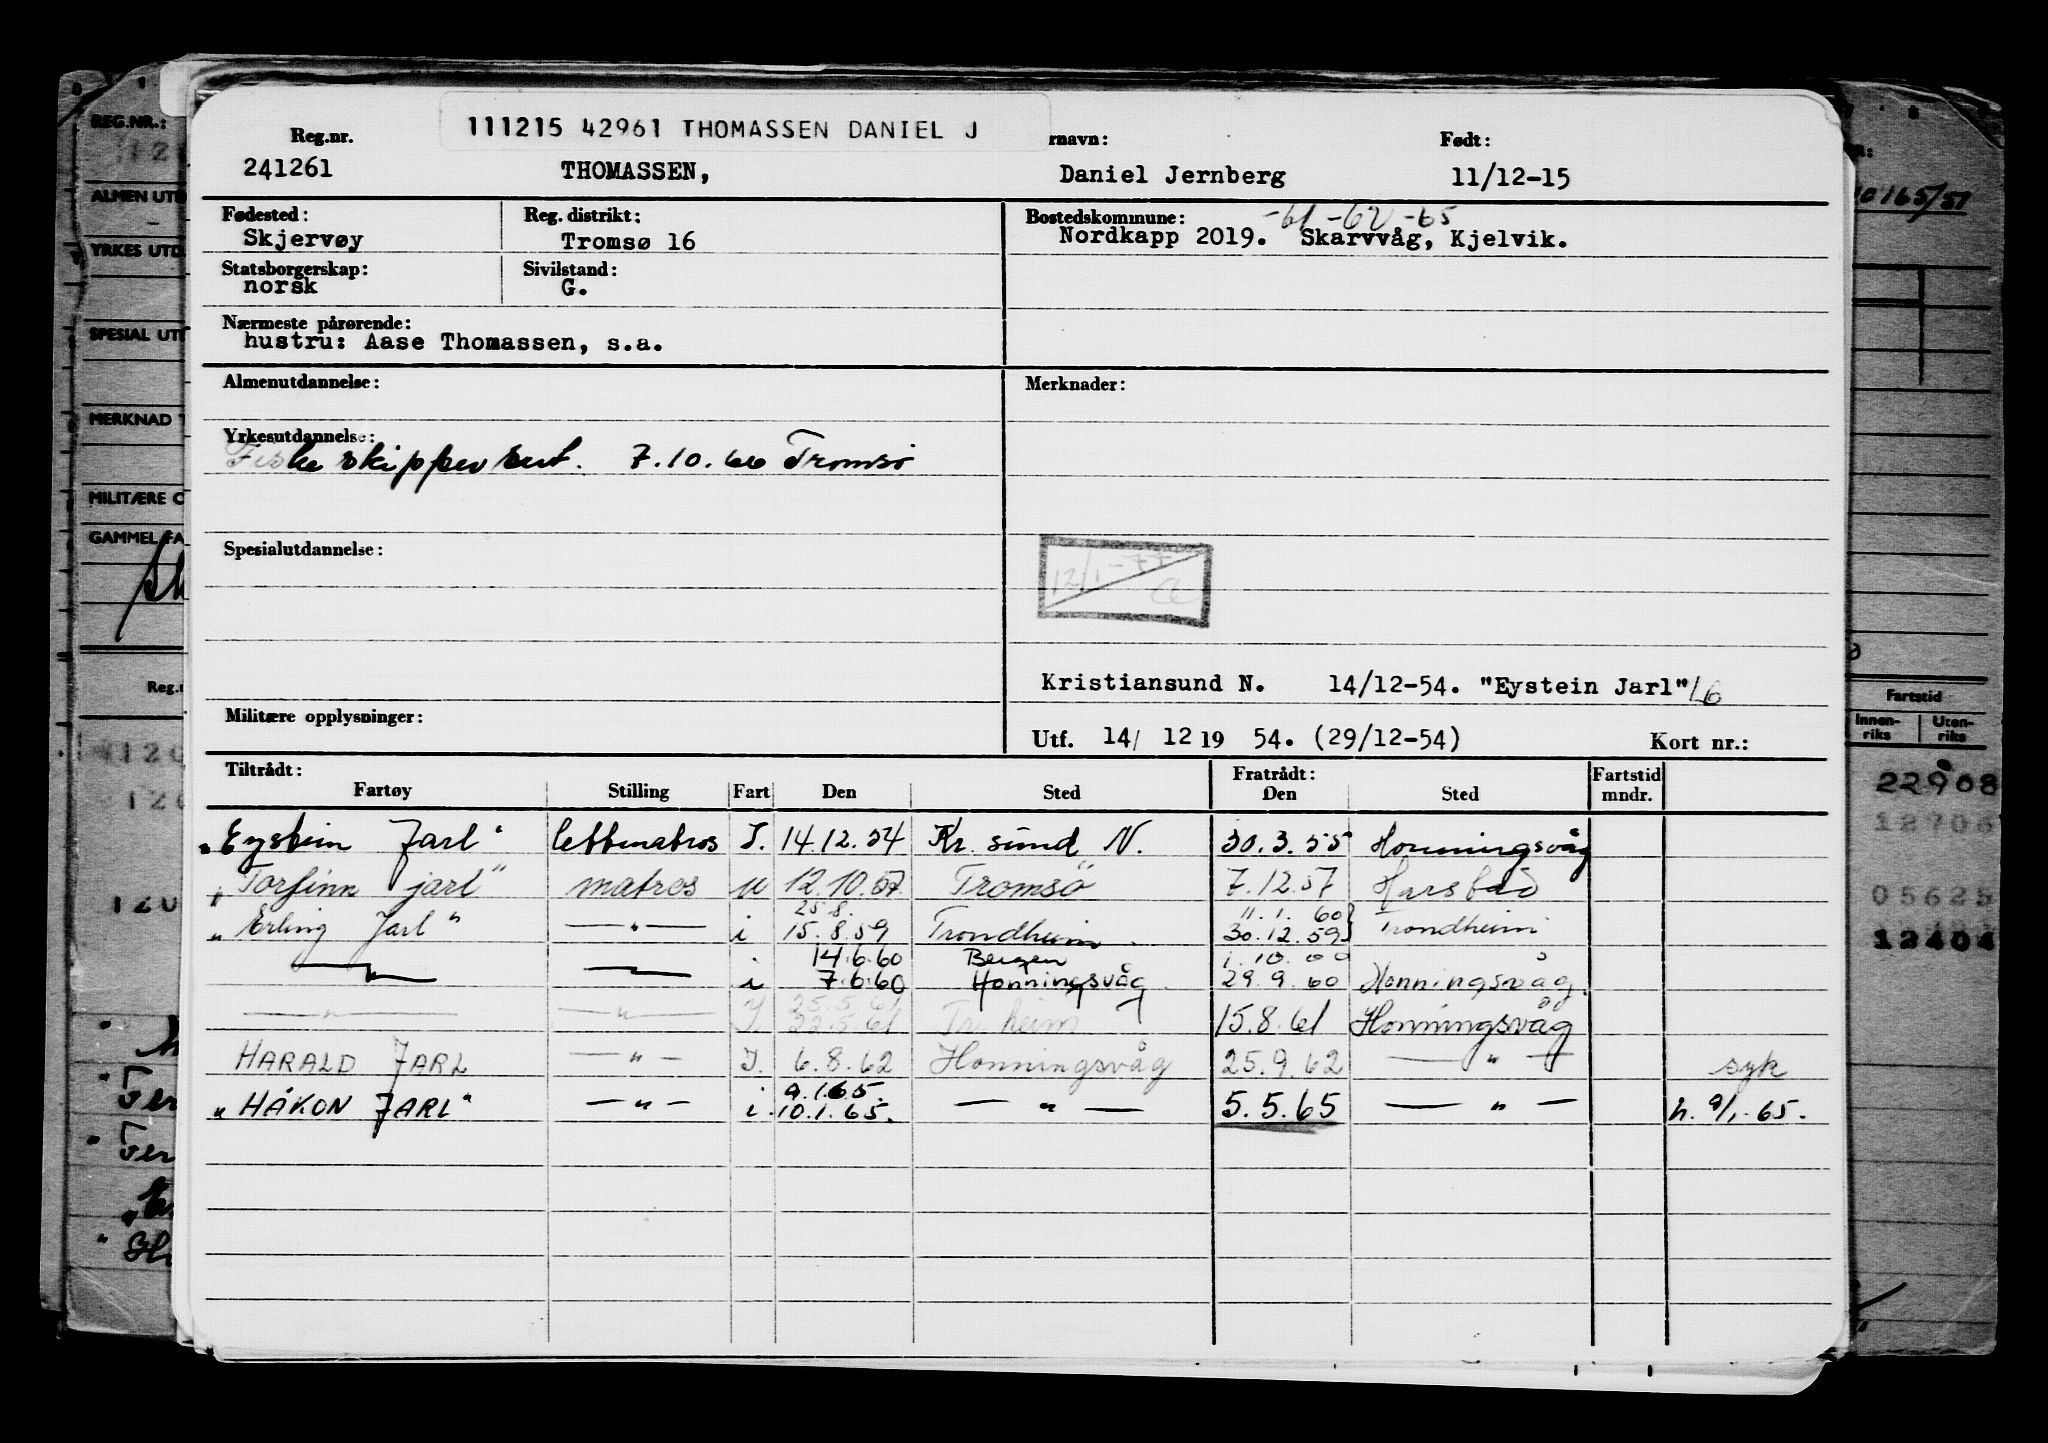 111215 42961 THOMASSEN DANIEL J
Reg.nr. rnavn: Født:
241261 THOMASSEN, Daniel Jernberg 11/12-15
Fødested: Reg. distrikt: Bostedskommune: -61 -62 -65
Skjervøy Tromsø 16 Nordkapp 2019. Skarvvåg, Kjelvik.
Statsborgerskap: Sivilstand:
norsk G.
Nærmeste pårørende:
hustru: Aase Thomassen, s.a.
Almenutdannelse: Merknader:
Yrkesutdannelse:
Fiskeskipper sert. 7.10.66 Tromsø
Spesialutdannelse:
12/1-77
Kristiansund N. 14/12-54. "Eystein Jarl" 16
Militære opplysninger:
Utf. 14/ 12 19 54. (29/12-54) Kort nr.:
Tiltrådt: Fratrådt: Fartstid
Fartøy Stilling Fart Den Sted Den Sted mndr.
"Eystein Jarl" lettmatros I. 14.12.54 Kr. sund N. 30.3.55 Honningsvåg
"Torfinn jarl" matros u 12.10.57 Tromsø 7.12.57 Harstad
25.8. 11.1.60
"Erling Jarl" —"— i 15.8.59 Trondheim 30.12.59 Trondheim
14.6.60 Bergen 1.10.60
—"— —"— i 7.6.60 Honningsvåg 29.9.60 Honningsvåg.
25.5.61
—"— —"— I. 22.5.61 Tr. heim 15.8.61 Honningsvåg
HARALD JARL —"— I. 6.8.62 Honningsvåg 25.9.62 —"— syk
9.1.65.
"HÅKON JARL" —"— i. 10.1.65. —"— 5.5.65 —"— h. 9/1-65.
REG.NR.:
ALMEN UTD
YRKES UTD.
SPESIAL UTD
MERKNAD T
MILITÆRE O
GAMMEL FA
Reg.n
10165/51
Fartstid
Innen-riks Uten-riks
22908
12706
05625
12404